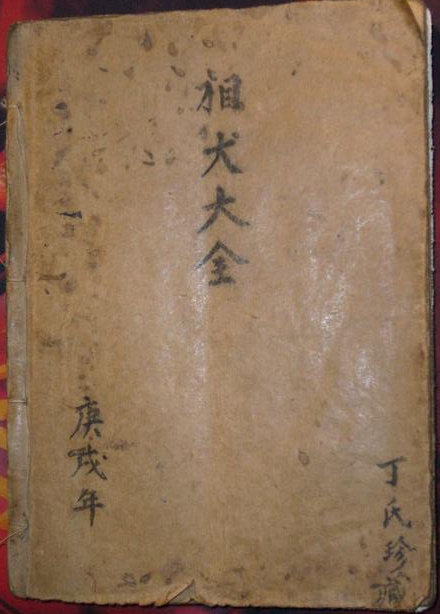 相犬大全
庚戌年
丁氏珍藏